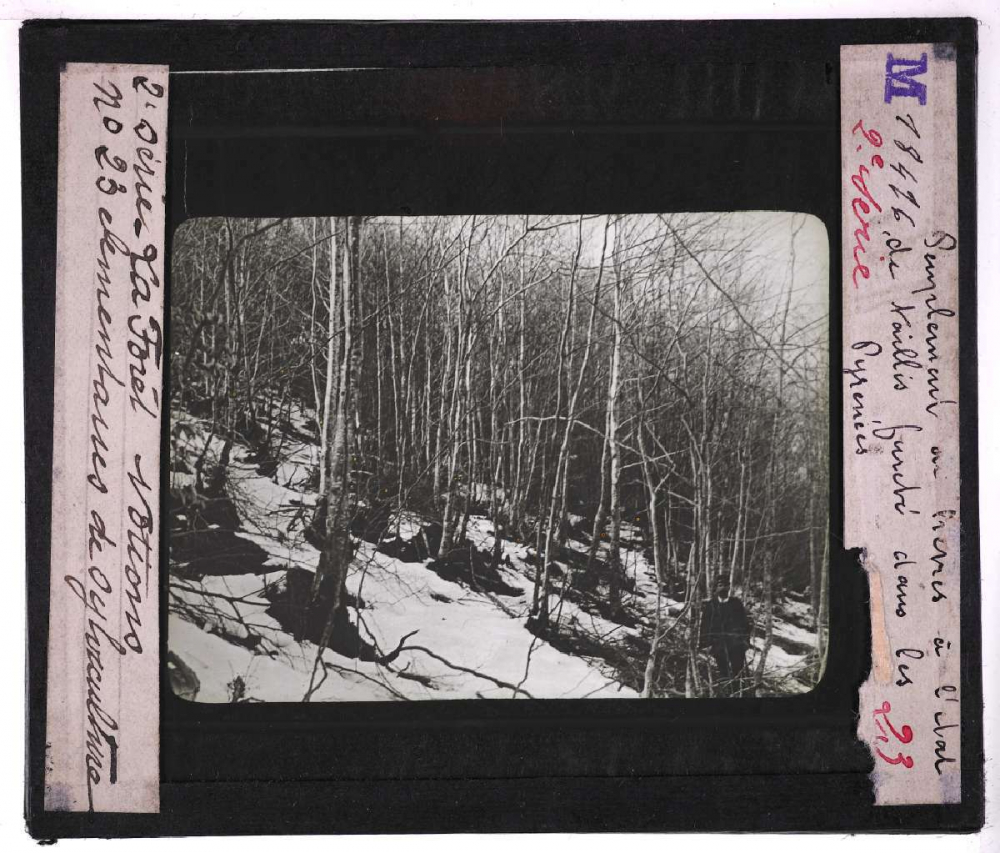 2e série La Forêt Notions
no 23 élémentaires de Sylviculture
M
Peuplement de hêtres à l'état
18476 de taillis fureté dans les
2e série Pyrénées 23